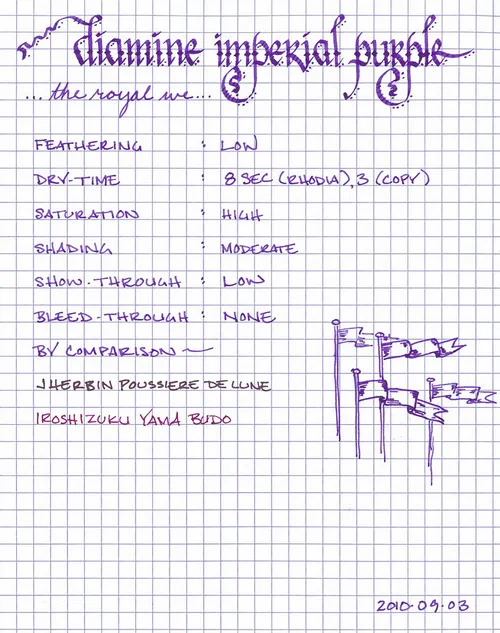 diamine imperial purple
... the royal we...
FEATHERING : LOW
DRY-TIME : 8 SEC (RHODIA), 3 (COPY)
SATURATION : HIGH
SHADING : MODERATE
SHOW-THROUGH : LOW
BLEED-THROUGH : NONE
BY COMPARISON ~
J HERBIN POUSSIERE DE LUNE
IROSHIZUKU YAMA BUDO
2010.09.03